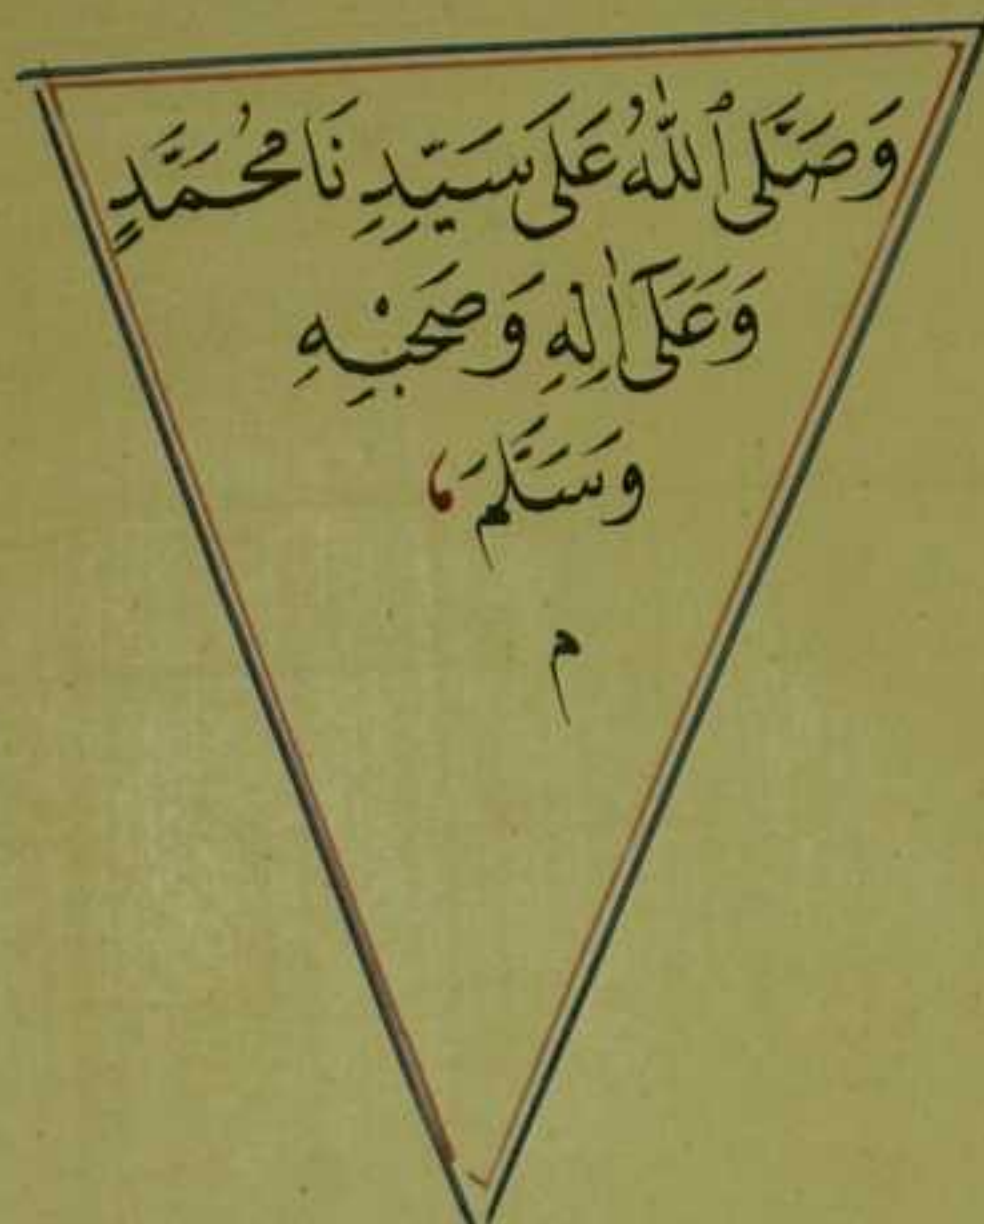 وَصَلَّى ٱللّٰهُ عَلَى سَيِّدِنَا مُحَمَّدٍ
وَعَلَىٰٓ اٰلِهِ وَصَحْبِهِ
وَسَلَّمَ
م